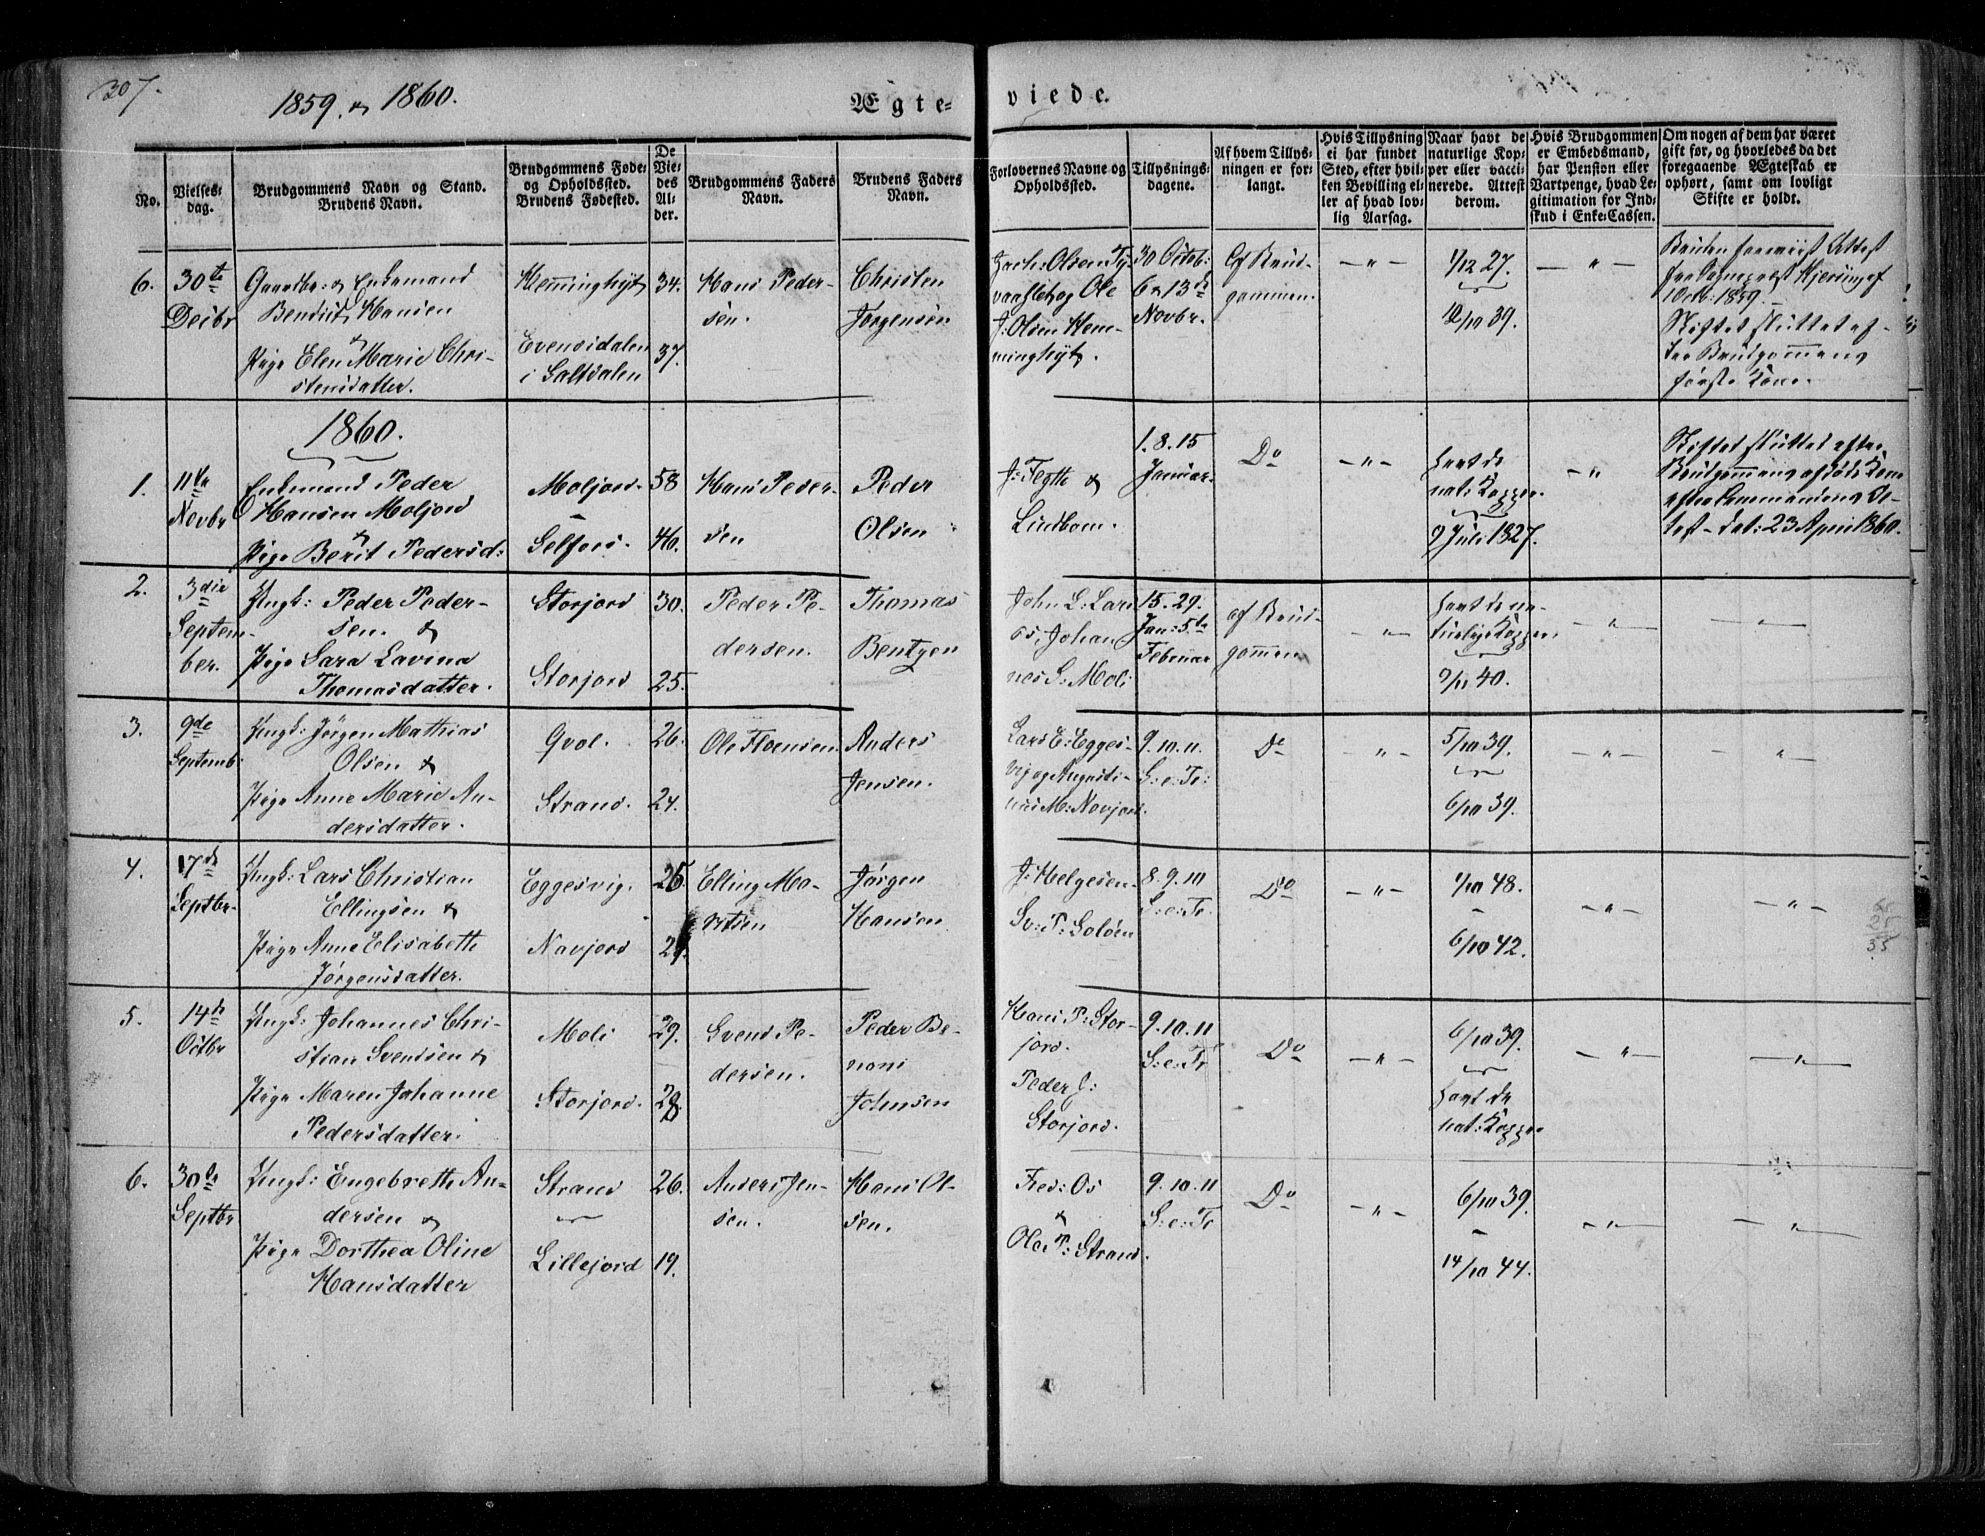 307.
1859. & 1860.
Ægte-
viede.
No.
Vielses-
dag.
Brudgommens Navn og Stand.
Brudens Navn.
Brudgommens Føde-
og Opholdssted.
Brudens Fødested.
De
Vie-
des
Al-
der.
Brudgommens Faders
Navn.
Brudens Faders
Navn.
Forlovernes Navne og
Opholdssted.
Tillysnings-
dagene.
Af hvem Tillys-
ningen er for-
langt.
Hvis Tillysning
ei har fundet
Sted, efter hvil-
ken Bevilling el-
ler af hvad lov-
lig Aarsag.
Naar havt de
naturlige Kop-
per eller vacci-
nerede. Attest
derom.
Hvis Brudgommen
er Embedsmand,
har Pension eller
Vartpenge, hvad Le-
gitimation for Ind-
skud i Enke-Cassen.
Om nogen af dem har været
gift før, og hvorledes da det
foregaaende Ægteskab er
ophørt, samt om lovligt
Skifte er holdt.
6.
30te
Decbr
Gaardbr: & Enkemand
Bendict Hansen
&
Pige Elen Marie Chri-
stensdatter.
Hemminghyt
Evensdalen
i Saltdalen
34.
37.
Hans Peder-
sen.
Christen
Jørgensen
Zach: Olsen
og Ole
J: Olsen Hem-
minghyt.
30 Octob:
6 & 13de
Novbr.
Af Brud-
gommen.
— " —
1/12 27.
12/10 39.
— " —
Bruden foreviist Attest
fra
1859. —
Skiftet sluttet ef-
ter Brudgommens
første Kone.
1860.
1.
11te
Novbr
Enkemand Peder
Hansen Moljord
&
Pige Berit Pedersd:
Moljord.
Selfors.
58
46.
Hans Peder-
sen
Peder
Olsen
J: Fegth &
Lindbom.
1. 8. 15
Januar.
Do
— " —
havt de
nat: Kopper.
9 Juli 1827.
— "
Skiftet sluttet efter
Brudgommens afdøde Kone
efter Lensmandens At-
test – dat: 23 April 1860.
2.
3die
Septem-
ber.
Ungk: Peder Peder-
sen. &
Pige Sara Lavina
Thomasdatter.
Storjord
Storjord
30.
25.
Peder Pe-
dersen.
Thomas
Bentzen
John L: Lars
os, Johan
nes S: Moli
15. 29.
Jan: 5te
Februar
af Brud-
gommen
— " —
havt de na-
turlige Kopper.
9/11 40.
— " —
— " —
3.
9de
Septemb:
Ungk: Jørgen Mathias
Olsen &
Pige Anne Marie An-
dersdatter.
Qvol.
Strand.
26.
24.
Ole Floensen
Anders
Jensen.
Lars E: Egges-
vig og Augusti-
nus M: Navjord.
9. 10. 11.
S: e: Tr:
Do
— " —
5/10 39.
6/10 39.
— " —
— " —
4.
17de
Septbr.
Ungk: Lars Christian
Ellingsen &
Pige Anne Elisabeth
Jørgensdatter.
Eggesvig.
Navjord
26.
21.
Elling Mo-
ritsen
Jørgen
Hansen
J: Helgesen
Sv: P: Soløen
8. 9. 10
S: e: Tr.
Do
— " —
1/10 48.
—
6/10 42.
— " —
— " —
25
35
5.
14de
Octbr
Ungk: Johannes Chri-
stian Svendsen &
Pige Maren Johanne
Pedersdatter.
Moli
Storjord.
29.
28.
Svend Pe-
dersen.
Peder Be-
noni
Johnsen
Hans P: Stor-
jord.
Peder J:
Storjord.
9. 10. 11
S: e: Tr
Do
— " —
6/10 39.
havt de
nat: Kopper
— " —
— " —
6.
30te
Septbr
Ungk: Engebreth An-
dersen &
Pige Dorthea Oline
Hansdatter
Strand
Lillejord
26.
19.
Anders Jen-
sen.
Hans Ol-
sen.
Fred: Os
&
Ole P: Strand.
9. 10. 11
S: e: Tr
Do
— " —
6/10 39.
—
14/10 44.
— " —
— " —